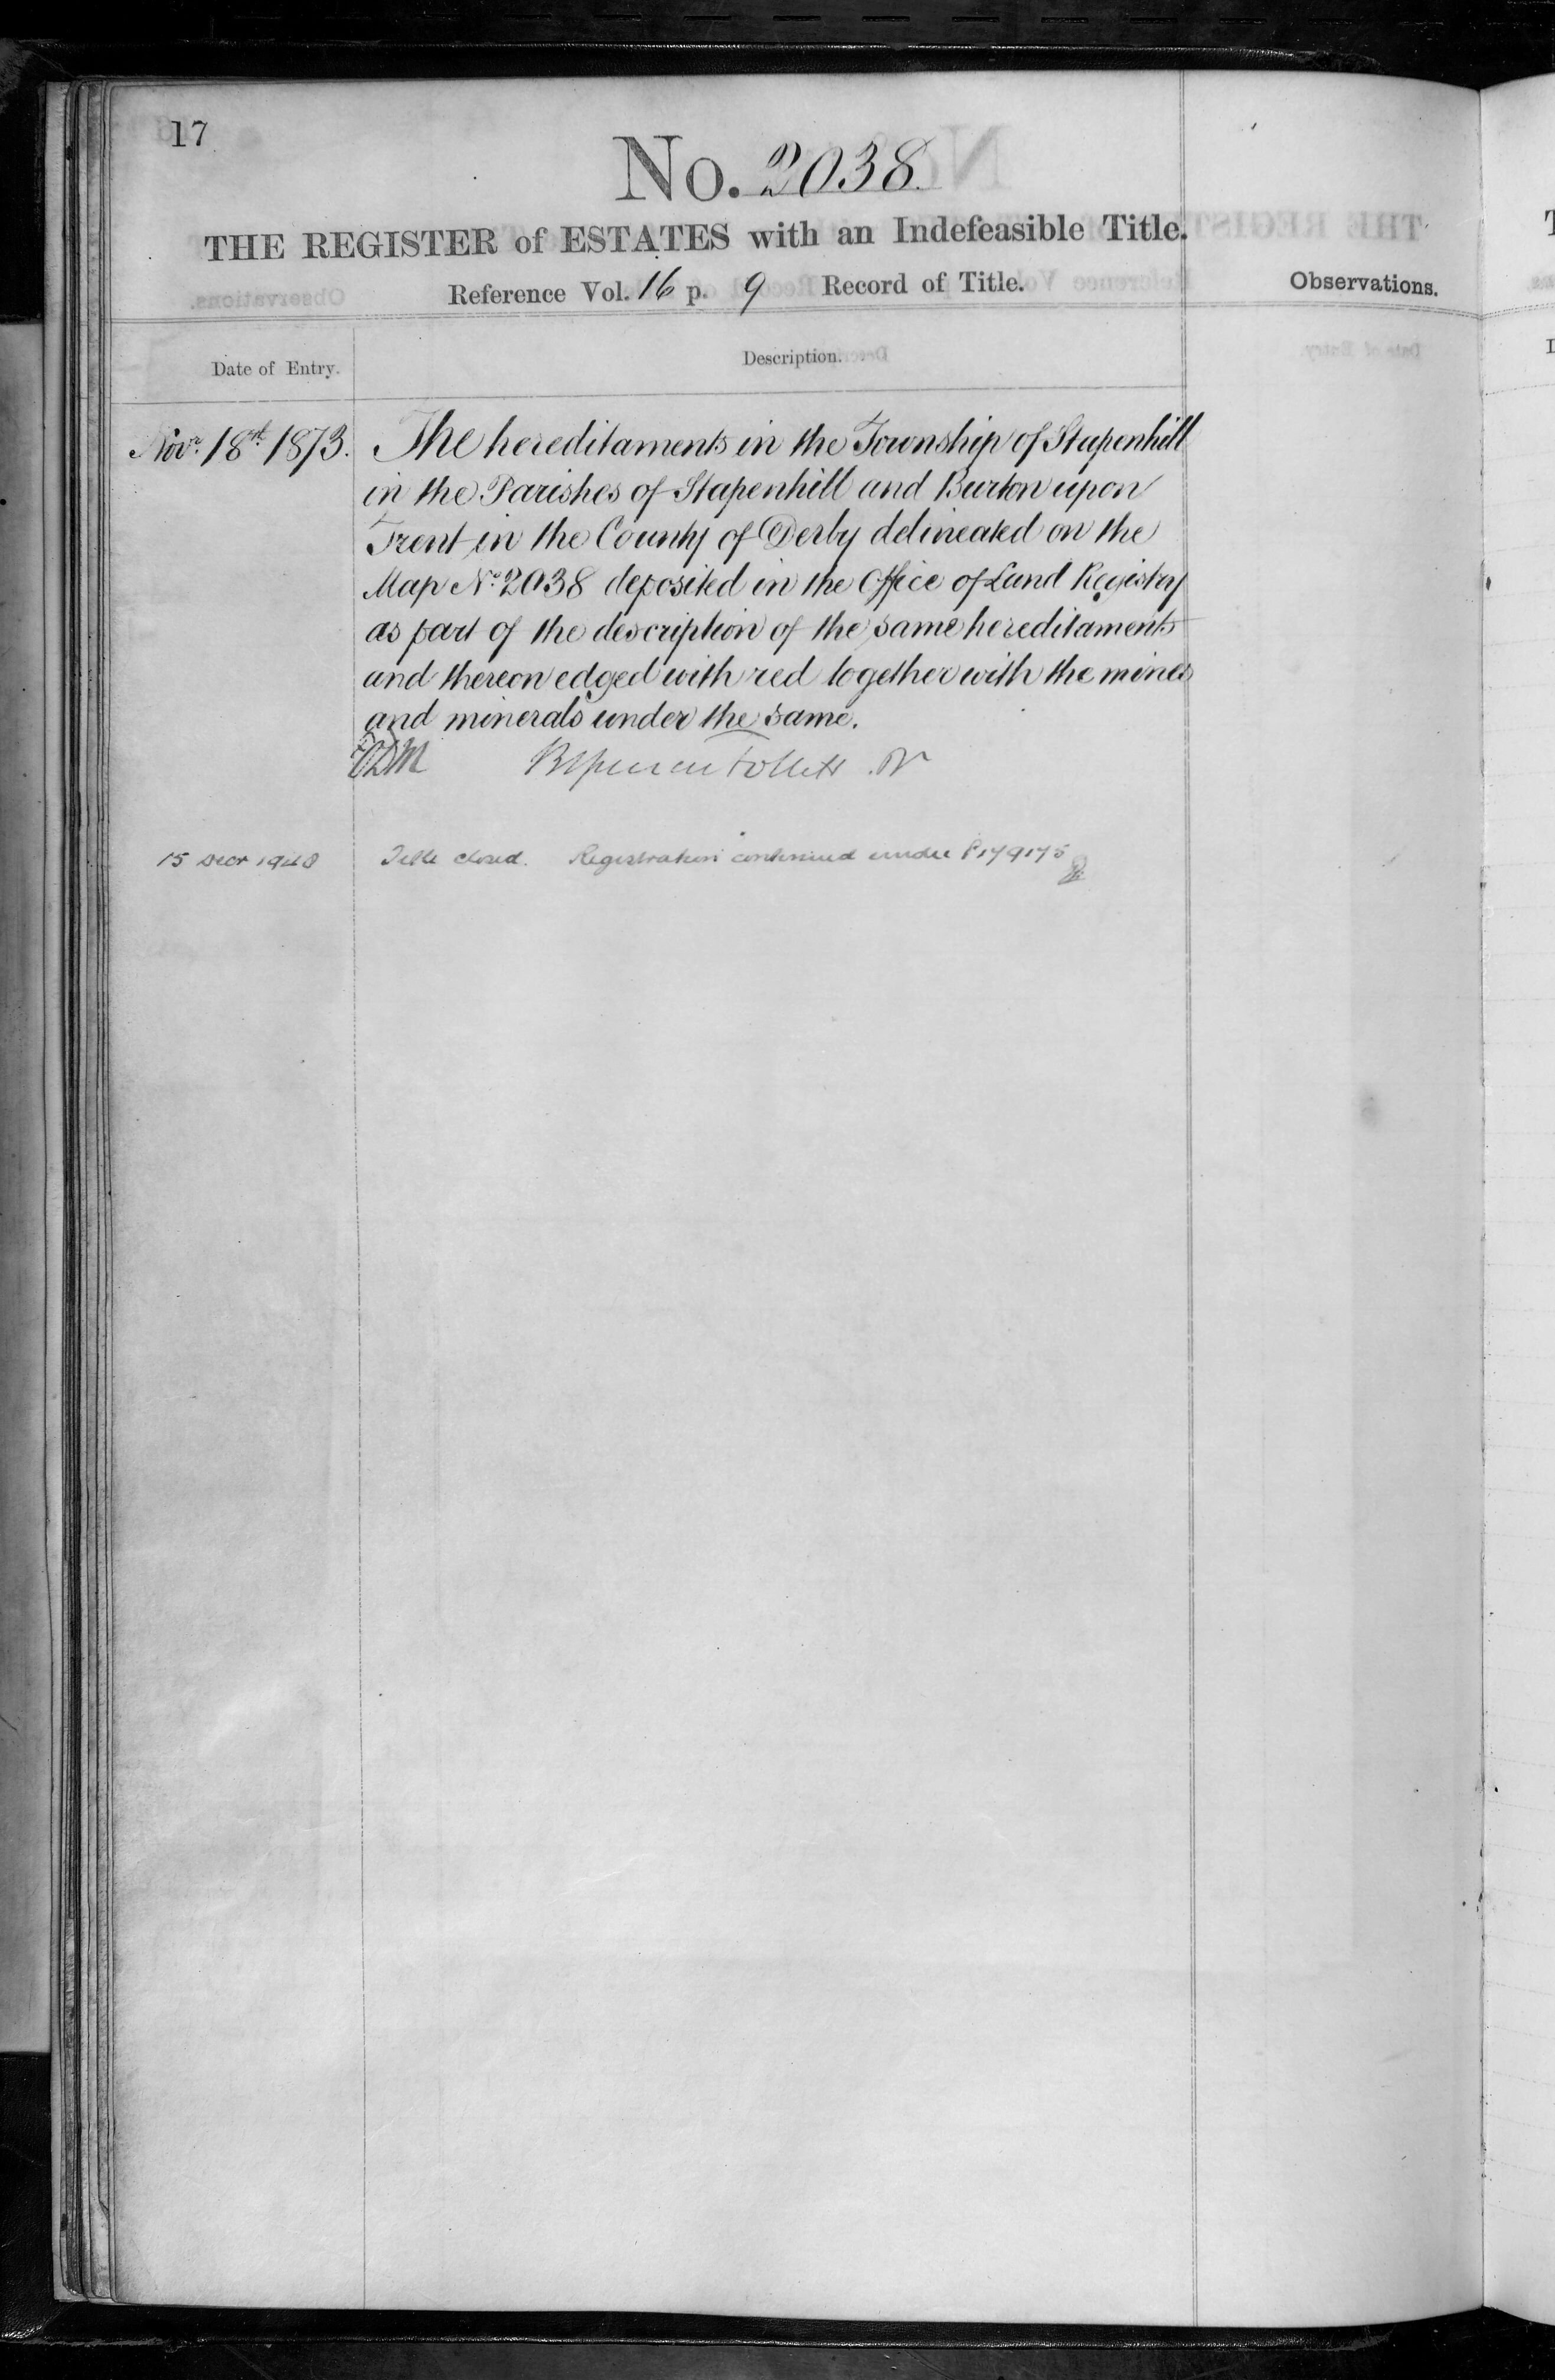 17
No. 2038.
THE REGISTER of ESTATES with an Indefeasible Title.
Reference Vol. 16 p. 9 Record of Title.
Observations.
Date of Entry.
Description.
Novr. 18th. 1873.
The hereditaments in the Township of Stapenhill
in the Parishes of Stapenhill and Burton upon
Trent in the County of Derby delineated on the
Map No. 2038 deposited in the Office of Land Registry
as part of the description of the same hereditaments
and thereon edged with red together with the mines
and minerals under the same.
Follett
15 Decr 1948
Title closed. Registration continued under P179175